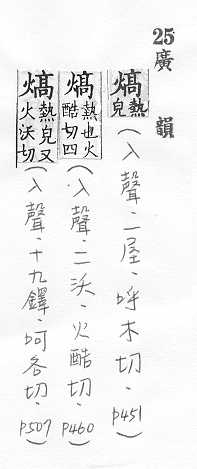 25廣韻
熇熱皃（入聲．一屋．呼木切．p451）
熇熱也火酷切四（入聲．二沃．火酷切．p460）
熇熱皃又火沃切（入聲．十九鐸．呵各切．p507）